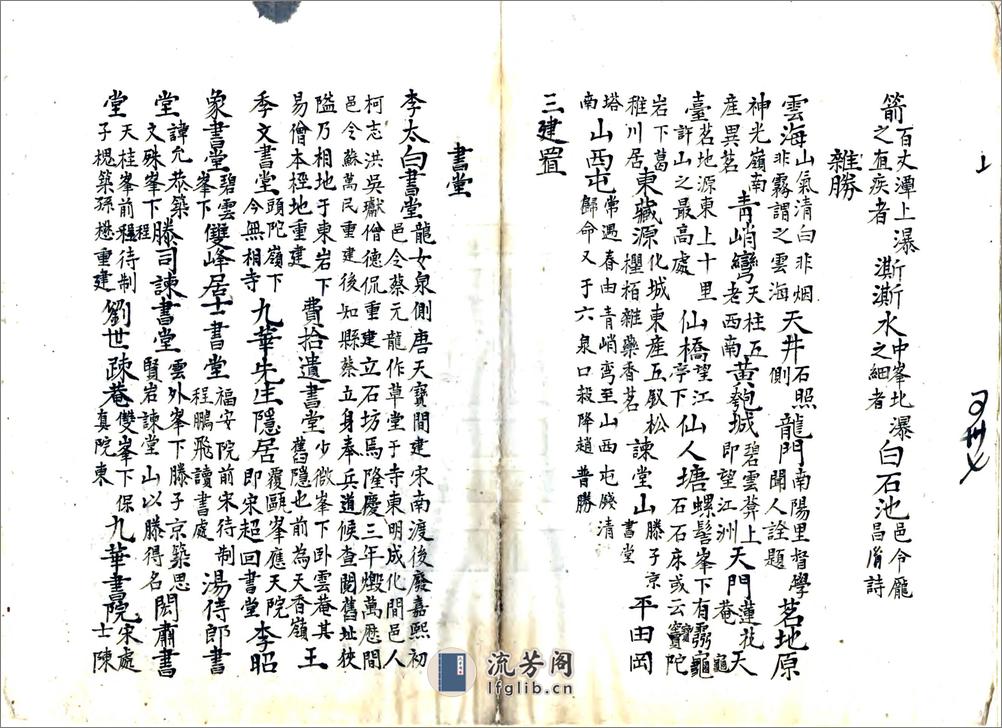 箭百丈潭上瀑之直疾者澌澌水中峯北瀑之細者白石池邑令龐昌胤詩
雜勝
雲海山氣清白非烟非霧謂之雲海天井石照側龍門南陽里督學聞人詮題茗地原
神光嶺南產異茗青峭彎天柱五老西南黃匏城碧雲上即望江洲天門蓮花菴天
臺茗地源東上十里許山之最高處仙橋望江亭下仙人塘螺髻峯下有靈龜石石床或云寶陀
岩下葛稚川居東藏源化城東產五釵松栢雜藥香茗諫堂山滕子京書堂平田岡
塔南山西屯常遇春由青峭彎至山西屯殘清歸命又于六泉口殺降趙普勝
三建置
書堂
李太白書堂龍女泉側唐天寶間建宋南渡後廢嘉熙初邑令蔡元龍作草堂于寺東明成化間邑人
柯志洪吳瓛僧德侃重建立石坊馬隆慶三年燬萬歷間邑令蘇萬民重建後知縣蔡立身奉兵道候查閱舊址狹
隘乃相地于東岩下易僧本極地重建費拾遺書堂少微峯下卧雲菴其舊隱也前為天香嶺王
季文書堂頭陀嶺下今無相寺九華先生隱居覆甌峯應天院即宋超回書堂李昭
象書堂碧雲峯下雙峰居士書堂福安院前宋待制程鵬飛讀書處湯侍郎書
堂諱允恭築文殊峯下滕司諫書堂雲外峯下滕子京築思賢岩諫堂山以滕得名閎肅書
堂天桂峯前程待制子楒築孫懋重建劉世疎菴雙峯下保真院東九華書院宋處士陳
上
流芳阁
lfglib.cn